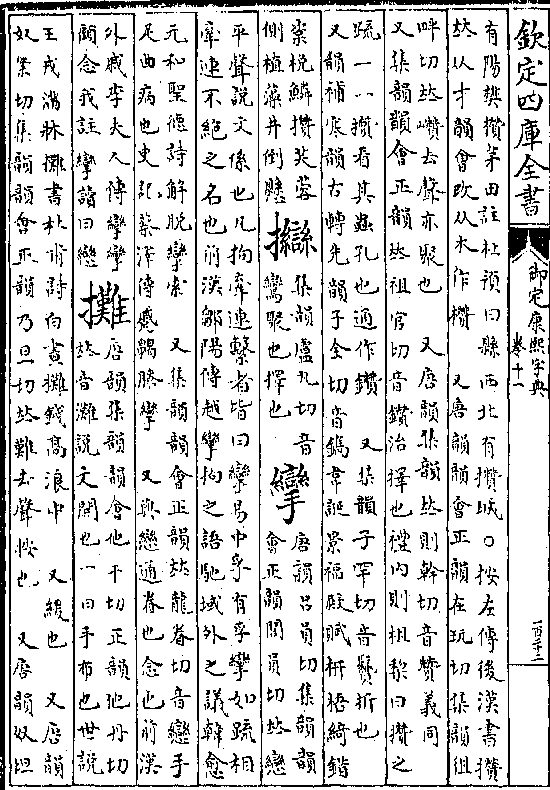 欽定四庫全書
御定康熙字典
卷十一
一百三十二
有陽樊攢茅田註杜預曰縣西北有攢城○按左傳後漢書攢
𠀤从才韻會改从木作欑 又唐韻韻會正韻在玩切集韻徂
畔切𠀤巑去聲亦聚也 又唐韻集韻𠀤則幹切音贊義同
又集韻韻會正韻𠀤祖官切音鑽治擇也禮內則柤棃曰攢之
疏一一攢看其蟲孔也通作鑽 又集韻子罕切音折也
又韻補寒韻古轉先韻子全切音鐫韋誕景福殿賦枅梧綺錯
楶梲鱗攢芙蓉
側植藻井倒懸
集韻盧丸切音
鸞聚也擇也
攣
唐韻呂員切集韻韻
會正韻閭員切𠀤戀
平聲說文係也凡拘牽連繫者皆曰攣易中孚有孚攣如疏相
牽連不絕之名也前漢鄒陽傳越攣拘之語馳域外之議韓愈
元和聖德詩解脫攣索 又集韻韻會正韻𠀤龍眷切音戀手
足曲病也史記蔡澤傳蹙齃膝攣 又與戀通眷也念也前漢
外戚李夫人傳攣攣
顧念我註攣讀曰戀
攤
唐韻集韻韻會他干切正韻他丹切
𠀤音灘說文開也一曰手布也世說
王戎滿牀攤書杜甫詩白晝攤錢高浪中 又緩也 又唐韻
奴案切集韻韻會正韻乃旦切𠀤難去聲按也 又唐韻奴坦